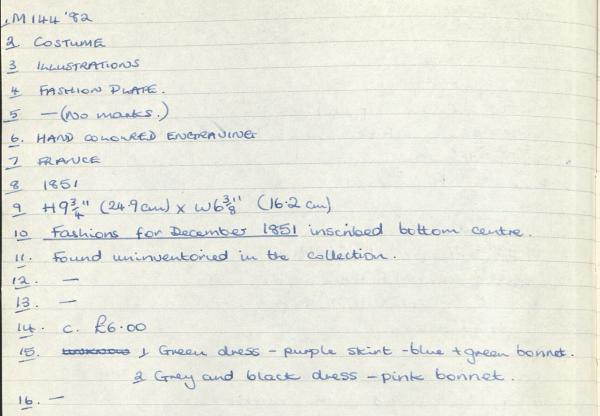 1. M 144 '82
2 COSTUME
3 ILLUSTRATIONS
4 FASHION PLATE.
5 — (No marks.)
6. HAND COLOURED ENGRAVING
7 FRANCE
8 1851
9 H9¾" (24.9cm) x W6⅜" (16.2 cm)
10 Fashions for December 1851 inscribed bottom centre.
11. Found uninventoried in the collection.
12. —
13. —
14. c. £6.00
15. 1 Green dress - purple skirt - blue + green bonnet.
2 Grey and black dress - pink bonnet.
16. —